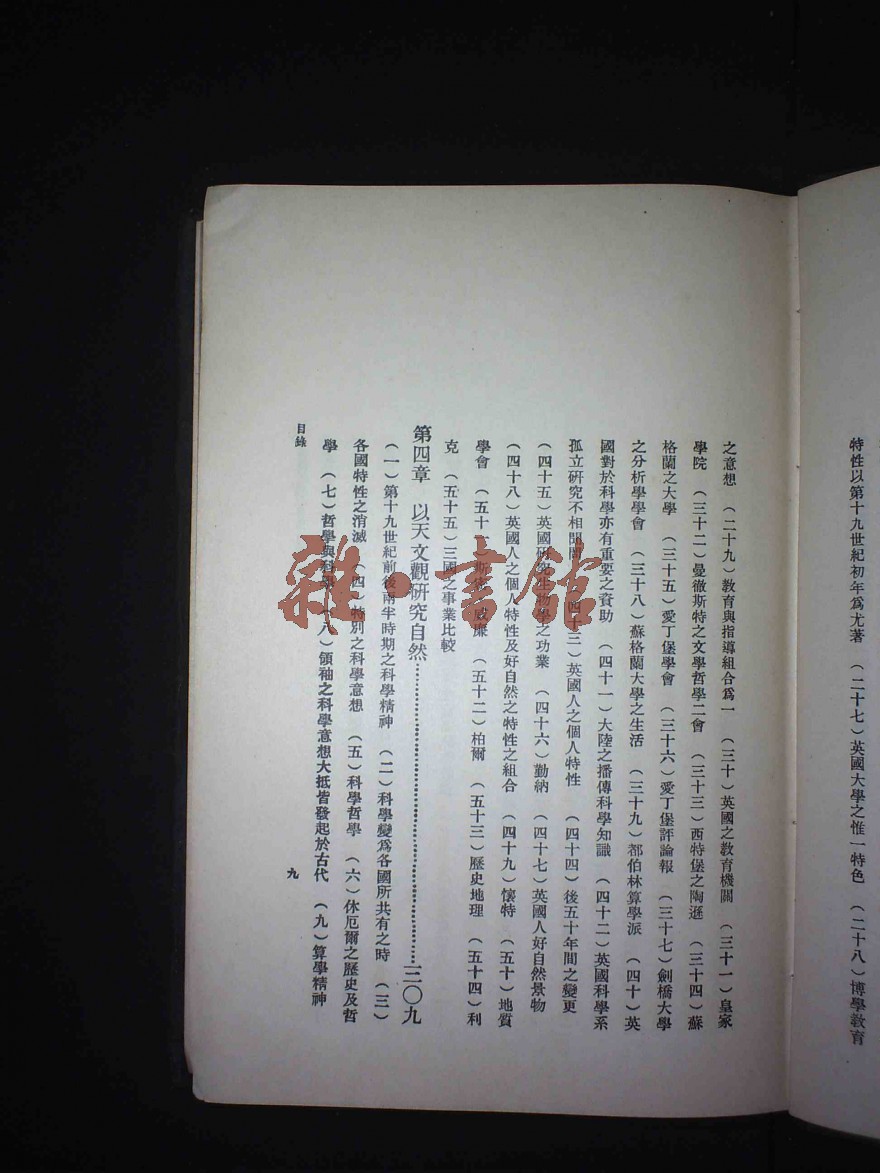 特性以第十九世紀初年爲尤著　（二十七）英國大學之惟一特色　（二十八）博學教育
之意想　（二十九）教育與指導組合爲一　（三十）英國之教育機關　（三十一）皇家
學院　（三十二）曼徹斯特之文學哲學二會　（三十三）西特堡之陶遜　（三十四）蘇
格蘭之大學　（三十五）愛丁堡學會　（三十六）愛丁堡評論報　（三十七）劍橋大學
之分析學學會　（三十八）蘇格蘭大學之生活　（三十九）都伯林算學派　（四十）英
國對於科學亦有重要之資助　（四十一）大陸之播傳科學知識　（四十二）英國科學系
孤立研究不相聞問　（四十三）英國人之個人特性　（四十四）後五十年間之變更
（四十五）英國研究生物學之功業　（四十六）勤納　（四十七）英國人好自然景物
（四十八）英國人之個人特性及好自然之特性之組合　（四十九）懷特　（五十）地質
學會　（五十一）斯密　威廉　（五十二）柏爾　（五十三）歷史地理　（五十四）利
克　（五十五）三國之事業比較
第四章　以天文觀研究自然……三〇九
（一）第十九世紀前後兩半時期之科學精神　（二）科學變爲各國所共有之時　（三）
各國特性之消滅　（四）特別之科學意想　（五）科學哲學　（六）休厄爾之歷史及哲
學　（七）哲學與科學　（八）領袖之科學意想大抵皆發起於古代　（九）算學精神
目錄
九
雜·書館